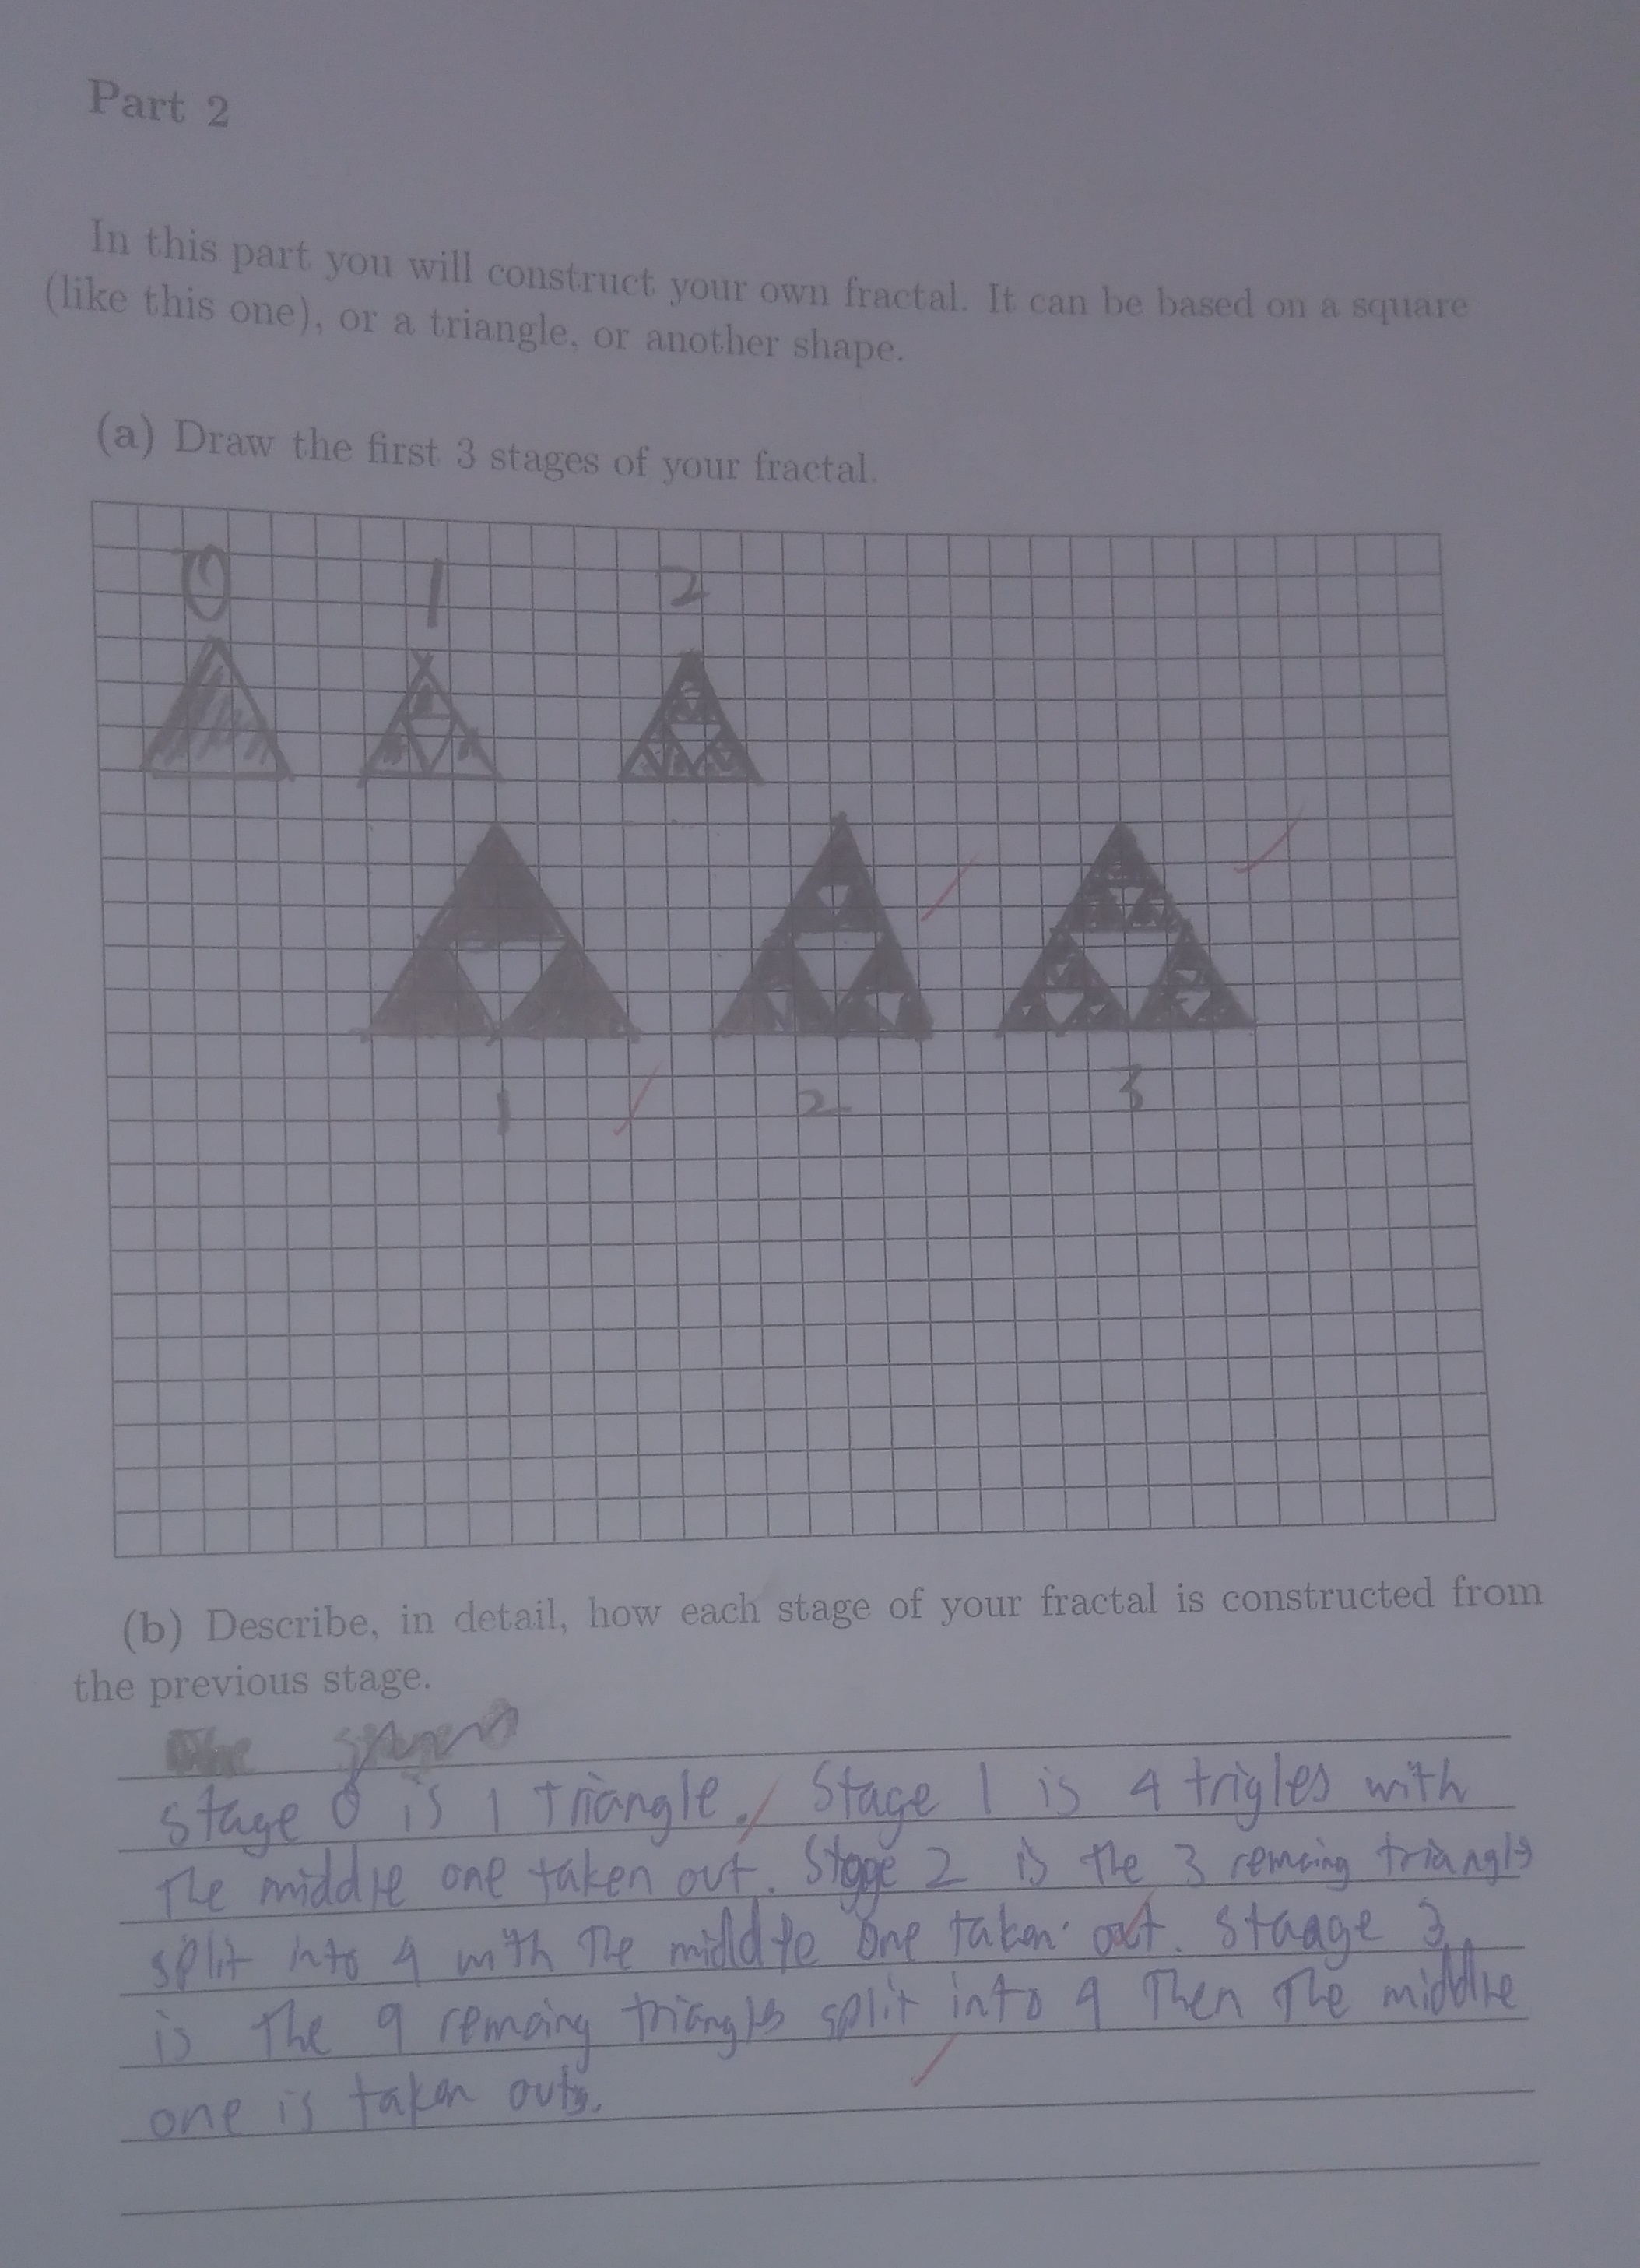 Part 2
In this part you will construct your own fractal. It can be based on a square
(like this one), or a triangle, or another shape.
(a) Draw the first 3 stages of your fractal.
0 1 2
1 2 3
(b) Describe, in detail, how each stage of your fractal is constructed from
the previous stage.
The
stage 0 is 1 triangle. Stage 1 is 4 trigles with
The middle one taken out. Stage 2 is the 3 remaing triangls
split into 4 with The middle one taken out. Staage 3
is The 9 remaing triangls split into 4 Then The middle
one is taken out.